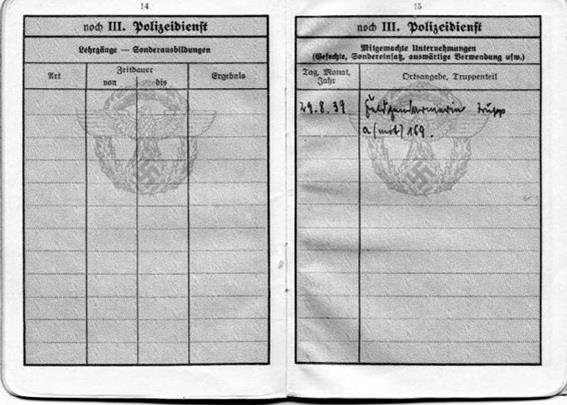 14
noch III. Polizeidienst
Lehrgänge — Sonderausbildungen
Art
Zeitdauer
von
bis
Ergebnis
15
noch III. Polizeidienst
Mitgemachte Unternehmungen
(Gefechte, Sondereinsatz, auswärtige Verwendung usw.)
Tag, Monat,
Jahr
Ortsangabe, Truppenteil
29.8.39 Feldgendarmerie Trupp
a (mot) 169.